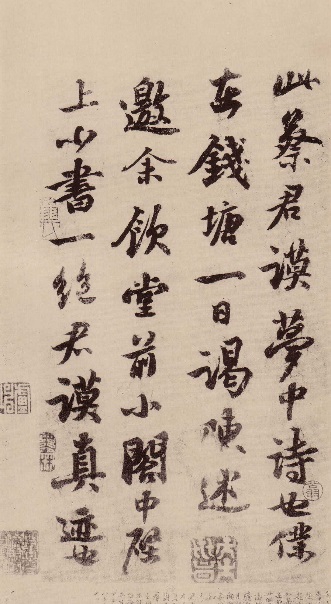 此蔡君謨夢中詩也僕
在錢塘一日謁陳述
邀余飲堂前小閣中壁
上小書一絶君謨真蹟也